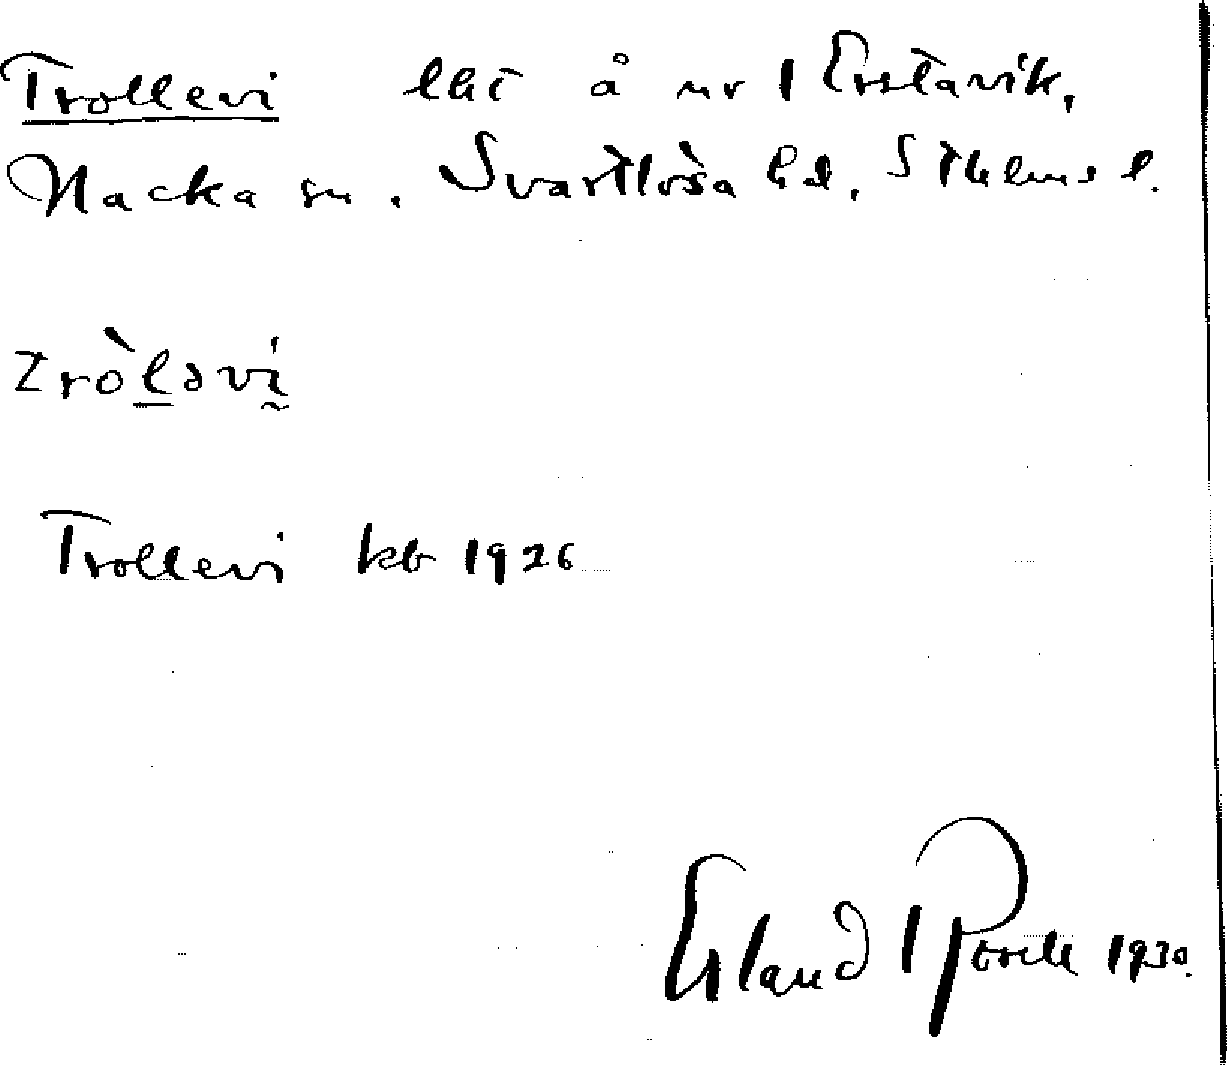 Trollevi lht å nr 1 Erstavik,
Nacka sn. Svartlösa hd, Sthlms l.
Tròləvi
Trollevi kb 1926
Erland 1930.